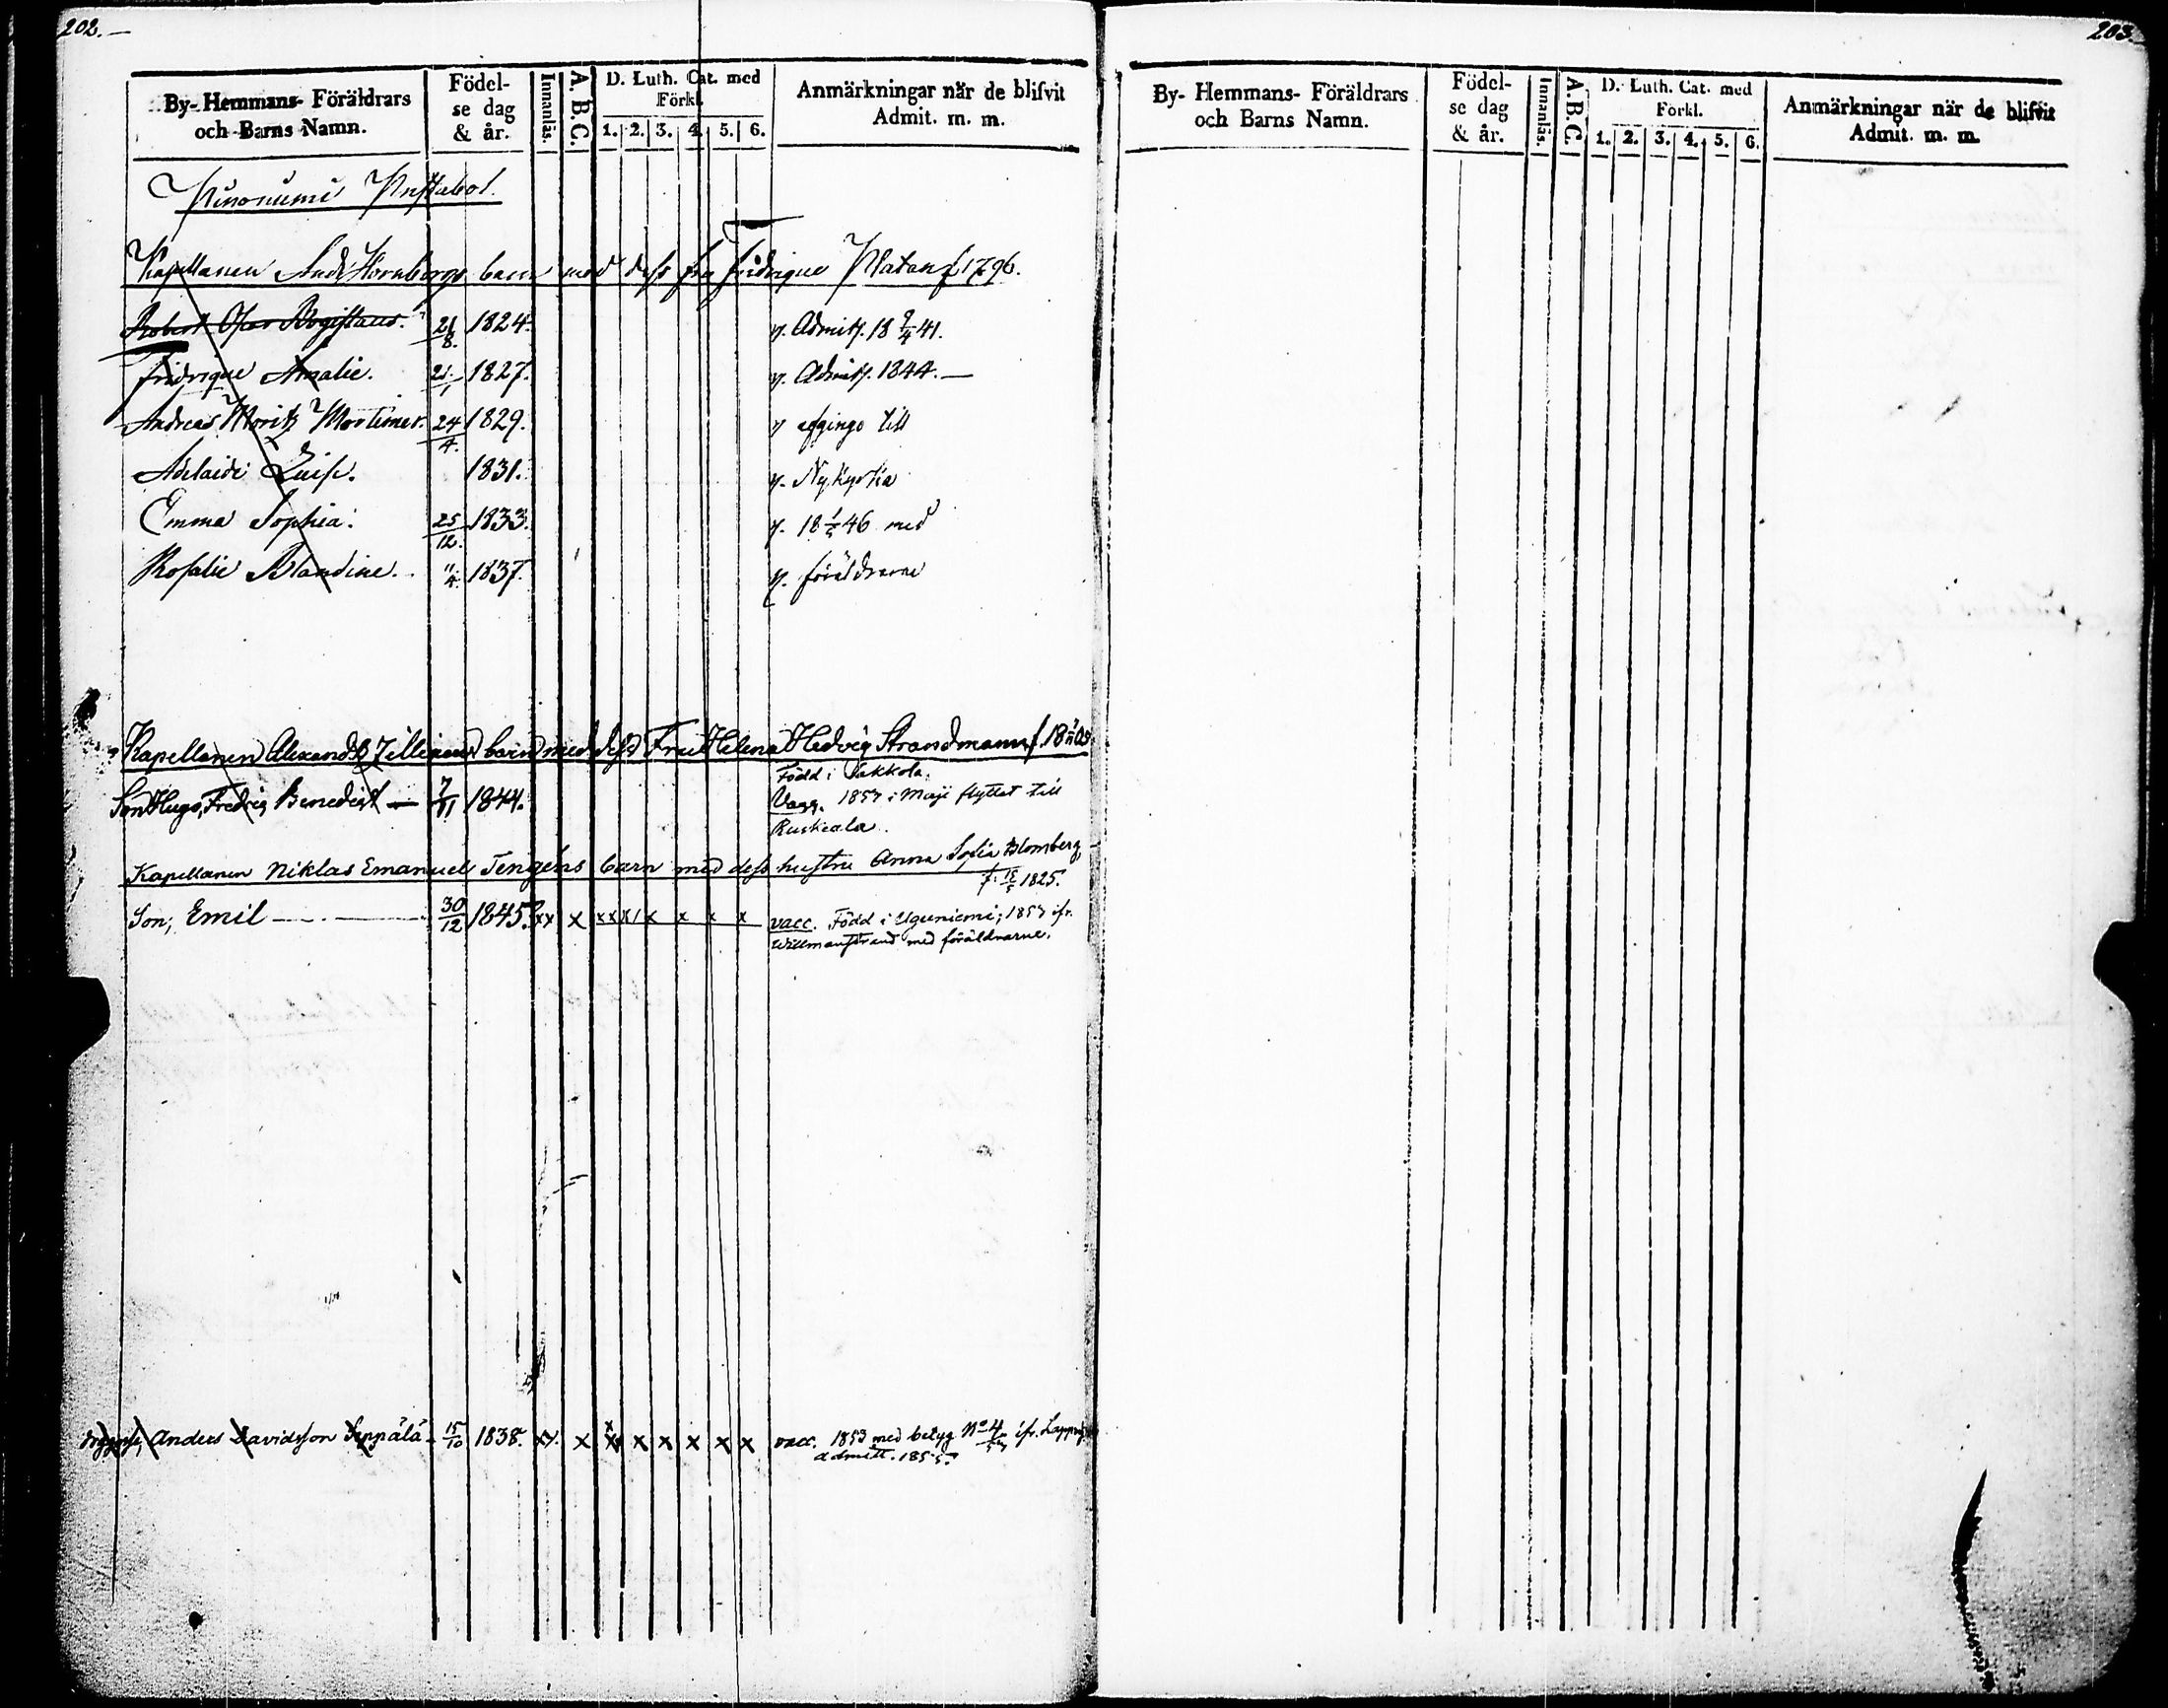 202.
By- Hemmans- Föräldrars och Barns Namn.
Födelse dag & år.
Innanläs.
A. B. C.
D. Luth. Cat. med Förkl.
1. 2. 3. 4. 5. 6.
Anmärkningar när de blifvit Admit. m. m.
Kapellanen And: Hornborgs barn med dess fru Fredrique Platan f 1796.
Robert 21/8. 1824. v. Admitt. 18 9/4 41.
Fredrique Amalie. 21/1 1827. v. Admitt. 1844.
Andreas Moritz Mortimer. 24/4. 1829. v afgingo till
Adelaide Luise. 1831. v. Nykyrka
Emma Sophia. 25/12. 1833. v. 18 46 med
Rosalie Blandine. 1837. v. föräldrarne
Kapellanen Alexander barn med dess Fru Helena Hedvig Strandmann f.
Född i Sakkola.
Son Hugo, Fredrig Benedigt 7/11 1844. Vacc. 1857 i Maji flyttat till
Ruskeala.
Kapellanen Niklas Emanuel Tengens barn med dess hustru Anna Sofia Blomberg
f. 1825.
Son, Emil 30/12 1845. xx x x x x vacc. Född i Uguniemi; 1857 ifr.
Willmanstrand med föräldrarne.
Anders Davidsson Seppälä 15/10 1838. x x x x x x vacc. 1853 med betyg No 4 ifr.
admitt. 1855.
203.
By- Hemmans- Föräldrars och Barns Namn.
Födelse dag & år.
Innanläs.
A. B. C.
D. Luth. Cat. med Förkl.
1. 2. 3. 4. 5. 6.
Anmärkningar när de blifvit Admit. m. m.